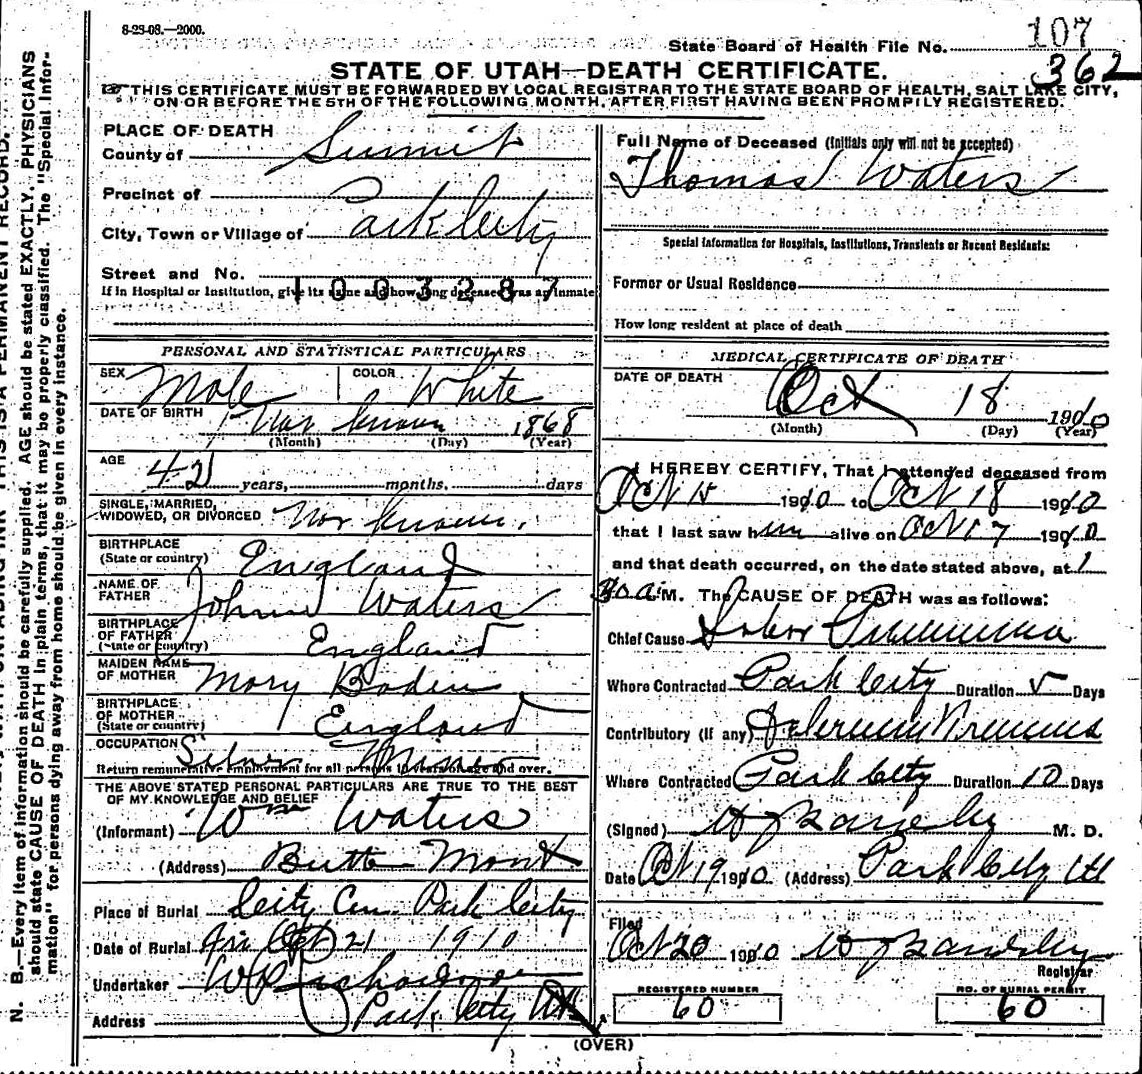 8-23-08.—2000.
107
State Board of Health File No. 362
STATE OF UTAH—DEATH CERTIFICATE.
THIS CERTIFICATE MUST BE FORWARDED BY LOCAL REGISTRAR TO THE STATE BOARD OF HEALTH, SALT LAKE CITY,
ON OR BEFORE THE 5TH OF THE FOLLOWING MONTH, AFTER FIRST HAVING BEEN PROMPTLY REGISTERED.
N. B.—Every item of information should be carefully supplied. AGE should be stated EXACTLY. PHYSICIANS
should state CAUSE OF DEATH in plain terms, that it may be properly classified. The "Special Infor-
mation" for persons dying away from home should be given in every instance.
THIS IS A PERMANENT RECORD.
PLACE OF DEATH
County of Summit
Precinct of
City, Town or Village of Park City
Street and No.
1003287
If in Hospital or Institution, give its name and how long deceased was an inmate
PERSONAL AND STATISTICAL PARTICULARS
SEX Male COLOR White
DATE OF BIRTH Not known 1868
(Month) (Day) (Year)
AGE 42 years, months. days
SINGLE, MARRIED,
WIDOWED, OR DIVORCED Not known.
BIRTHPLACE
(State or country) England
NAME OF
FATHER John Waters
BIRTHPLACE
OF FATHER
(State or country) England
MAIDEN NAME
OF MOTHER Mary Boden
BIRTHPLACE
OF MOTHER
(State or country) England
OCCUPATION Silver Miner
Return remunerative employment for all persons 10 years of age and over.
THE ABOVE STATED PERSONAL PARTICULARS ARE TRUE TO THE BEST
OF MY KNOWLEDGE AND BELIEF
(Informant) Wm Waters
(Address) Butte Mont
Place of Burial City Cem. Park City
Date of Burial Fri Oct 21 1910
Undertaker
Address Park City Utah
Full Name of Deceased (Initials only will not be accepted)
Thomas Waters
Special Information for Hospitals, Institutions, Transients or Recent Residents:
Former or Usual Residence
How long resident at place of death
MEDICAL CERTIFICATE OF DEATH
DATE OF DEATH
Oct 18 1910
(Month) (Day) (Year)
I HEREBY CERTIFY, That I attended deceased from
Oct 15 1910 to Oct 18 1910
that I last saw him alive on Oct 17 1910
and that death occurred, on the date stated above, at 1
30 a.M. The CAUSE OF DEATH was as follows:
Chief Cause Lobar Pneumonia
Where Contracted Park City Duration 5 Days
Contributory (If any) Delerium Tremens
Where Contracted Park City Duration 10 Days
(Signed) M. D.
Date Oct 19 1910 (Address) Park City Ut
Filed
Oct 20 1910
Registrar
REGISTERED NUMBER
60
NO. OF BURIAL PERMIT
60
(OVER)